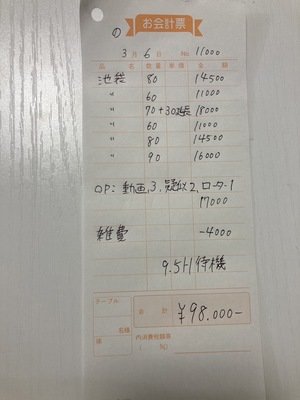 の
お会計票
3月6日 No. 11000
品名 数量 単価 金額
池袋 80 14500
〃 60 11000
〃 70+30延長 18000
〃 60 11000
〃 80 14500
〃 90 16000
OP:動画3.疑似2.ローター1
17000
雑費 -4000
9.5H待機
テーブル
名様
係
合計 ¥98.000-
内消費税額等
( %)